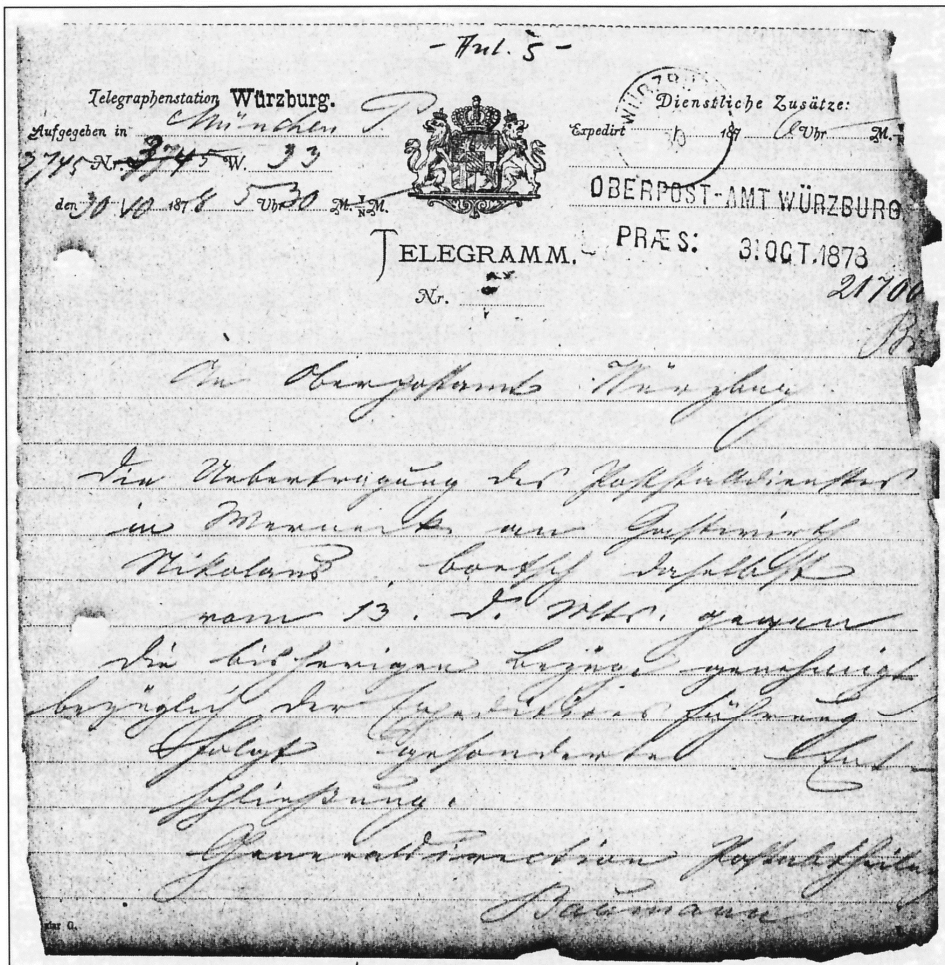 - Anl. 5 -
Telegraphenstation Würzburg.
Aufgegeben in München P
3745 Nr. 3745 W. 33
den 30/10 1878 5 Uhr 30 M. V/N M.
Dienstliche Zusätze:
Expedirt 187 6 Uhr M.
WÜRZBURG
OBERPOST-AMT WÜRZBURG
PRÆS: 31 OCT. 1878
21700
TELEGRAMM.
Nr.
An Oberpostamt Würzburg
die Uebertragung des Poststalldienstes
in Werneck an Gastwirth
Nikolaus Boetsch daselbst
vom 13. d. Mts. gegen
die bisherigen Bezüge genehmigt
bezüglich der Expeditions führung
folgt gesonderte Ent-
schließung.
Generaldirection Postabtheilu
Baumann